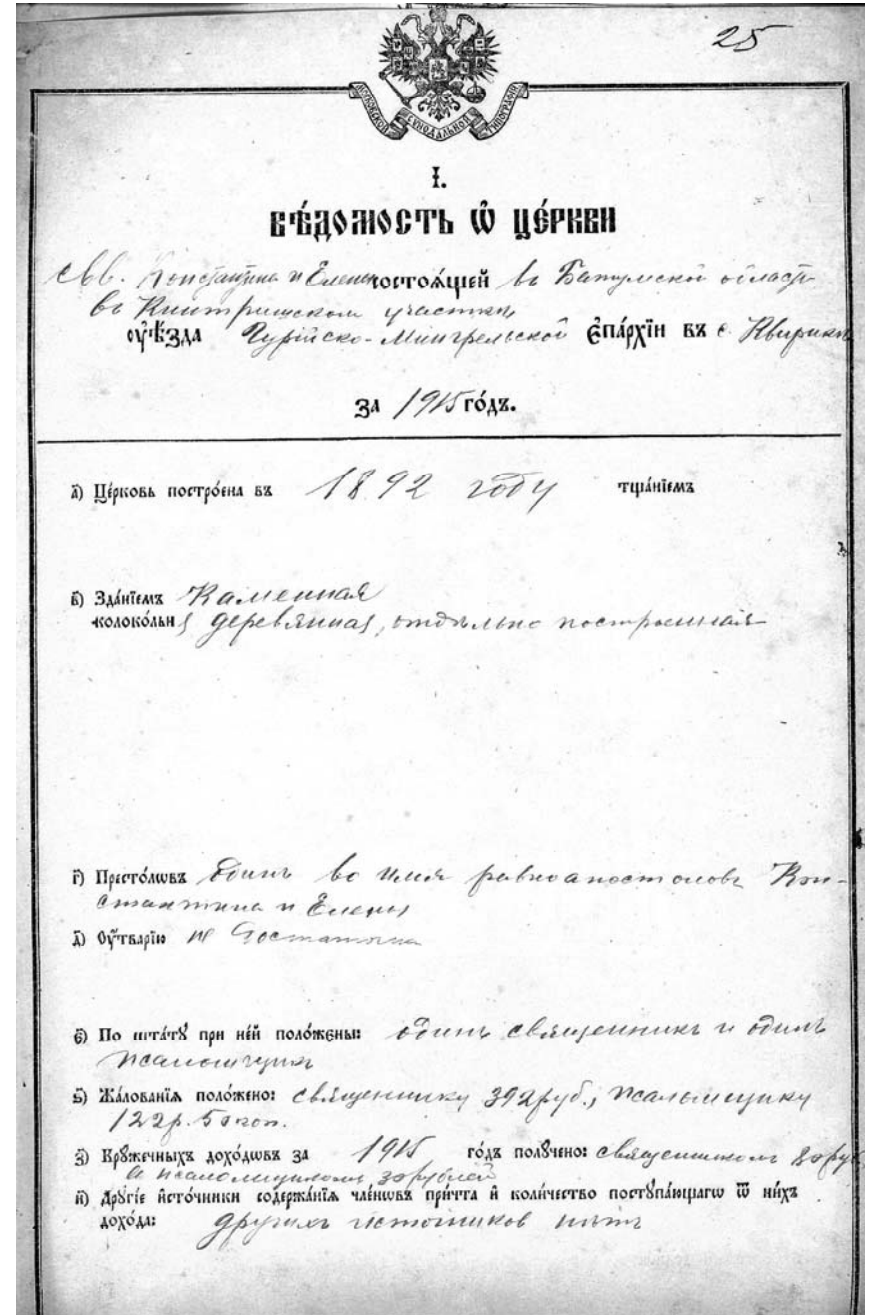 25
МОСКОВСКОЙ СѴНОДАЛЬНОЙ ТИПОГРАФІИ
І.
ВѢ́ДОМОСТЬ Ѽ ЦЕ́РКВИ
свв. Константина и Елены состоѧ́щей въ Батумской области
въ Кинтришском участкѣ
ᲂу҆ѣ́зда Гурійско-Мингрельской є҆па́рхїи въ с. Квирике
за 1915 го́дъ.
а҃) Це́рковь постро́ена въ 1892 году тща́нїемъ
в҃) Зда́нїемъ Каменная
колоко́льнѧ деревянная, отдѣльно построенная
г҃) Престо́лѡвъ одинъ во имя равноапостоловъ Кон-
стантина и Елены
д҃) Оу҆́тварїю не достаточна
є҃) По шта́тꙋ при не́й поло́жены: одинъ священникъ и одинъ
псаломщикъ
ѕ҃) Жа́лованїѧ поло́жено: священнику 392 руб., псаломщику
122 р. 50 коп.
з҃) Крꙋ́жечныхъ дохо́дѡвъ за 1915 го́дъ полꙋ́чено: священником руб
а псаломщиком 30 рублей
и҃) Дрꙋгі́е и҆сто́чники содержа́нїѧ чле́нѡвъ при́чта и҆ коли́чество постꙋпа́ющагѡ ѿ ни́хъ
дохо́да: других источников нѣтъ